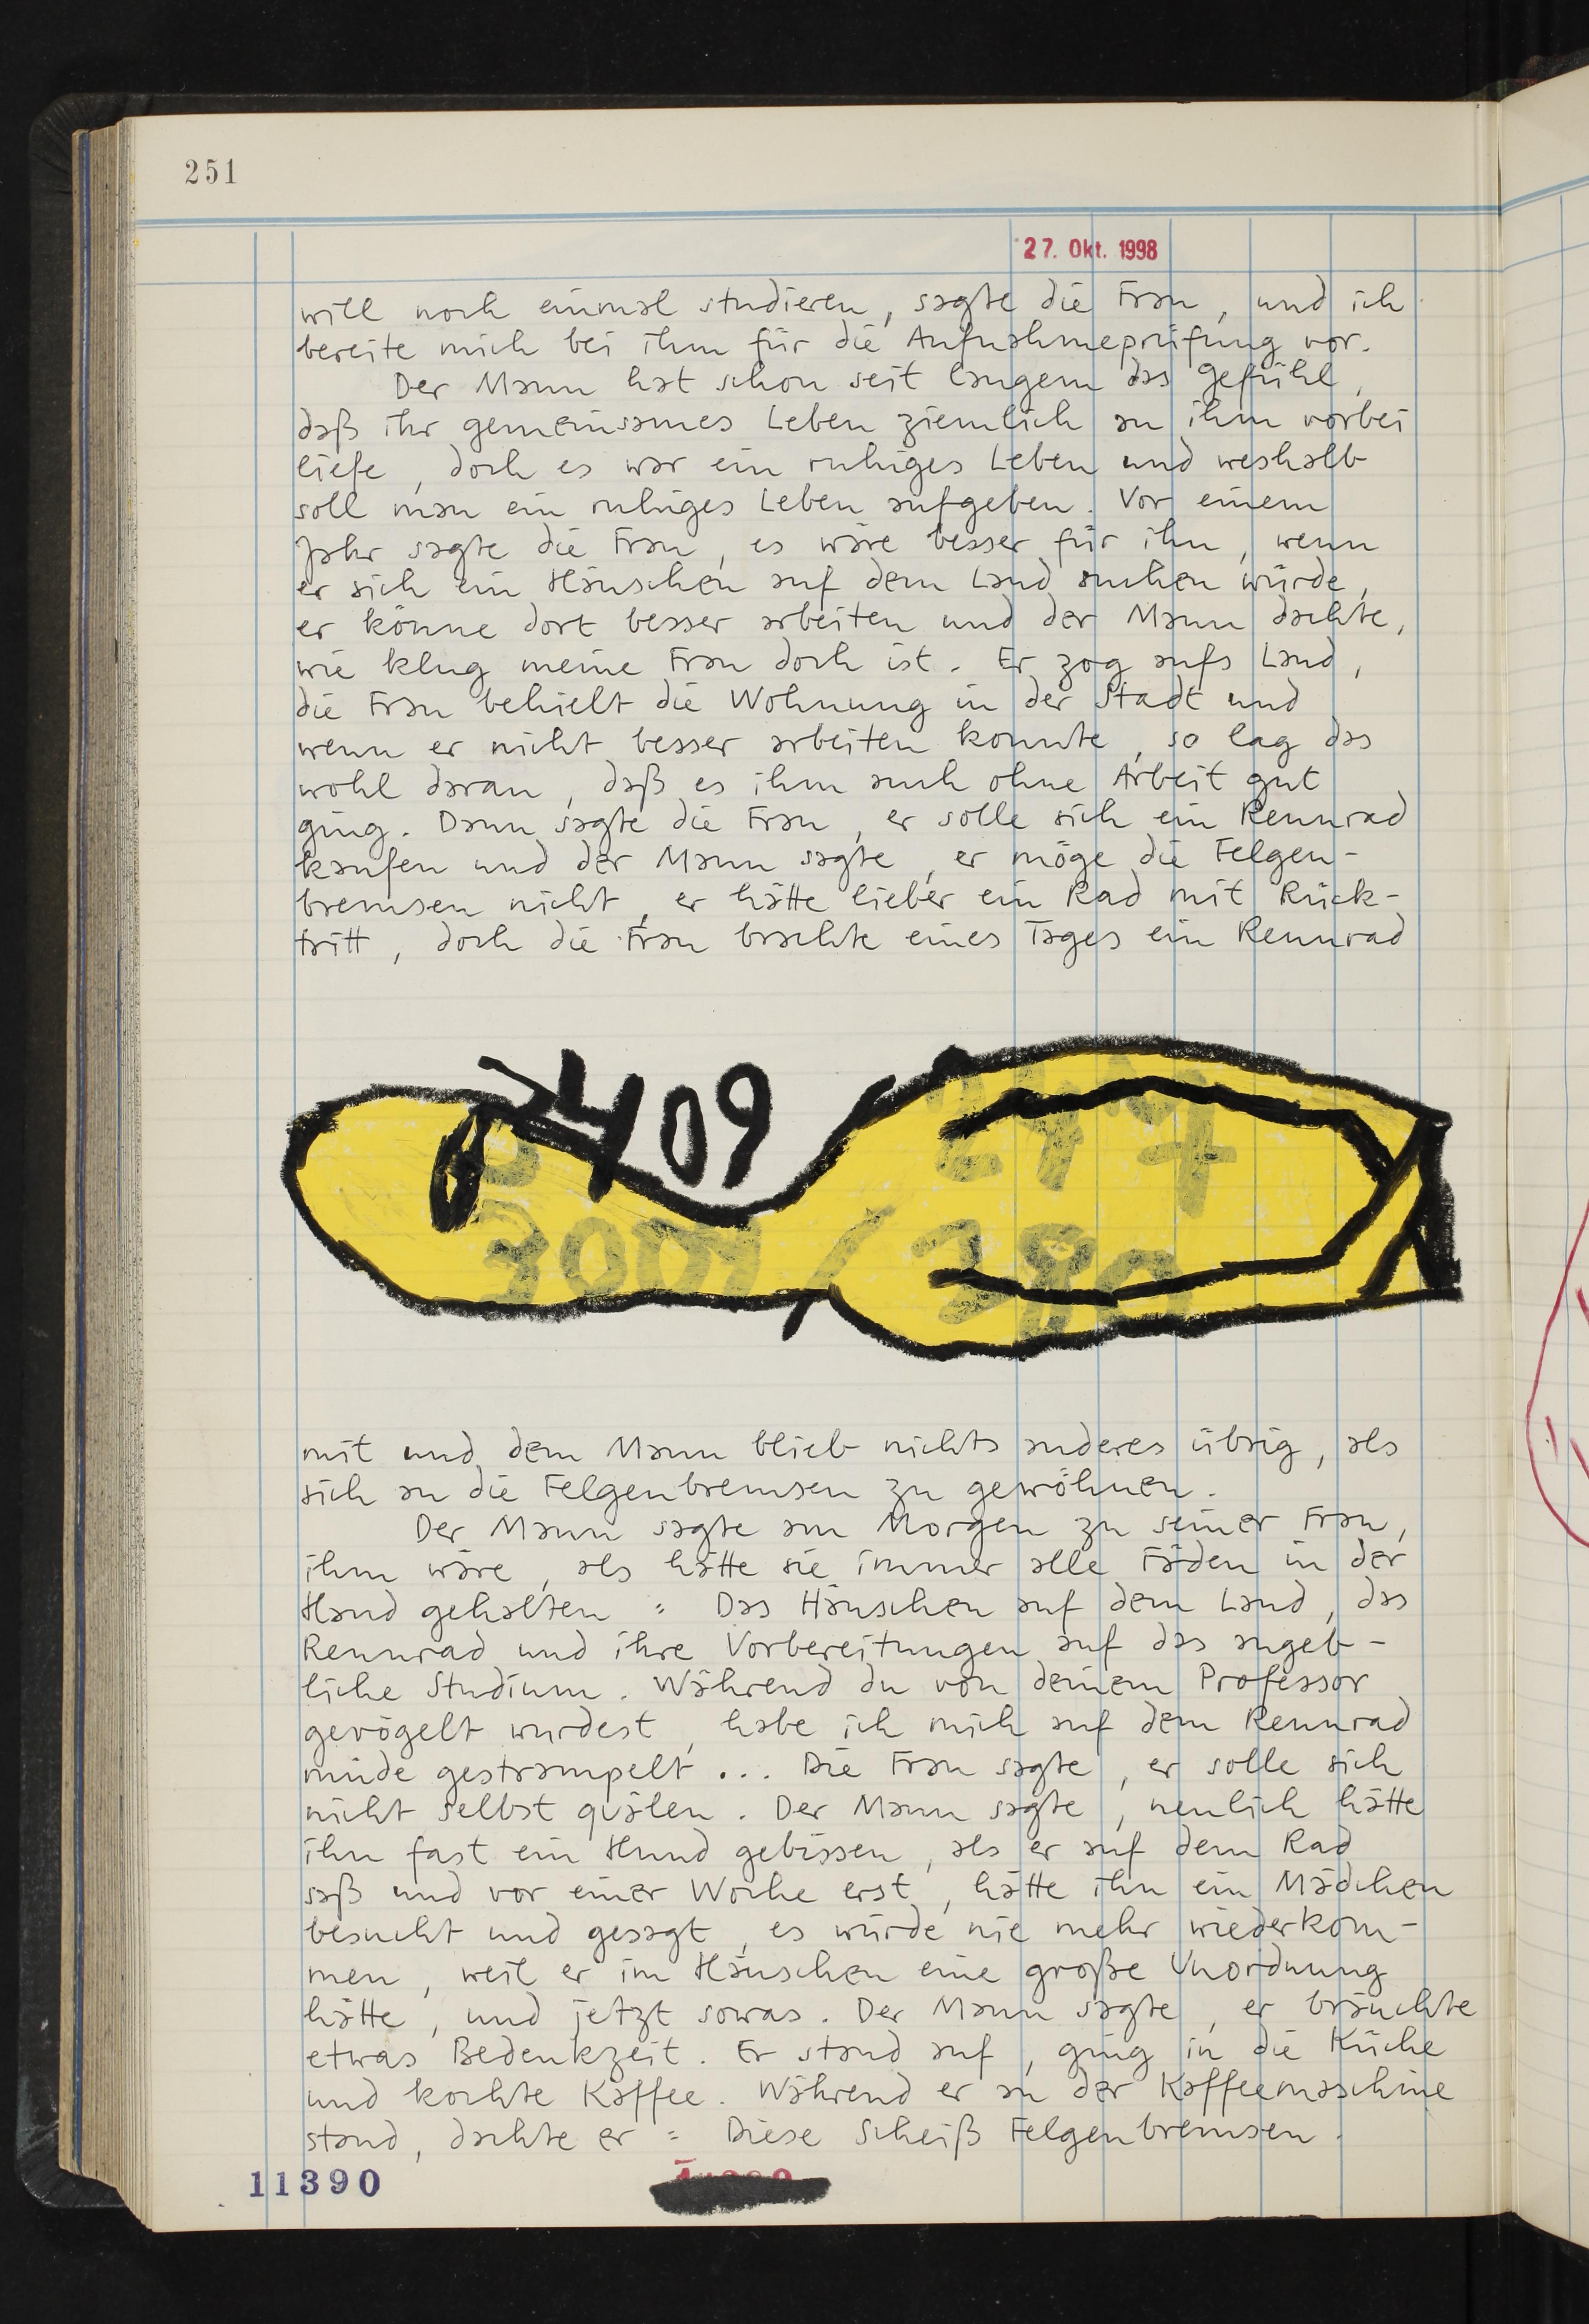 251
27. Okt. 1998
will noch einmal studieren, sagte die Frau, und ich
bereite mich bei ihm für die Aufnahmeprüfung vor.
Der Mann hat schon seit langem das Gefühl,
daß ihr gemeinsames Leben ziemlich an ihm vorbei
liefe, doch es war ein ruhiges Leben und weshalb
soll man ein ruhiges Leben aufgeben. Vor einem
Jahr sagte die Frau, es wäre besser für ihn, wenn
er sich ein Häuschen auf dem Land suchen würde,
er könne dort besser arbeiten und der Mann dachte,
wie klug meine Frau doch ist. Er zog aufs Land,
die Frau behielt die Wohnung in der Stadt und
wenn er nicht besser arbeiten konnte, so lag das
wohl daran, daß es ihm auch ohne Arbeit gut
ging. Dann sagte die Frau, er solle sich ein Rennrad
kaufen und der Mann sagte, er möge die Felgen-
bremsen nicht, er hätte lieber ein Rad mit Rück-
tritt, doch die Frau brachte eines Tages ein Rennrad
409
mit und dem Mann blieb nichts anderes übrig, als
sich an die Felgenbremsen zu gewöhnen.
Der Mann sagte am Morgen zu seiner Frau,
ihm wäre, als hätte sie immer alle Fäden in der
Hand gehalten: Das Häuschen auf dem Land, das
Rennrad und ihre Vorbereitungen auf das angeb-
liche Studium. Während du von deinem Professor
gevögelt wurdest, habe ich mich auf dem Rennrad
müde gestrampelt... Die Frau sagte, er solle sich
nicht selbst quälen. Der Mann sagte, neulich hätte
ihn fast ein Hund gebissen, als er auf dem Rad
saß und vor einer Woche erst, hätte ihn ein Mädchen
besucht und gesagt, es würde nie mehr wiederkom-
men, weil er im Häuschen eine große Unordnung
hätte, und jetzt sowas. Der Mann sagte, er bräuchte
etwas Bedenkzeit. Er stand auf, ging in die Küche
und kochte Kaffee. Während er an der Kaffeemaschine
stand, dachte er: Diese Scheiß Felgenbremsen.
11390